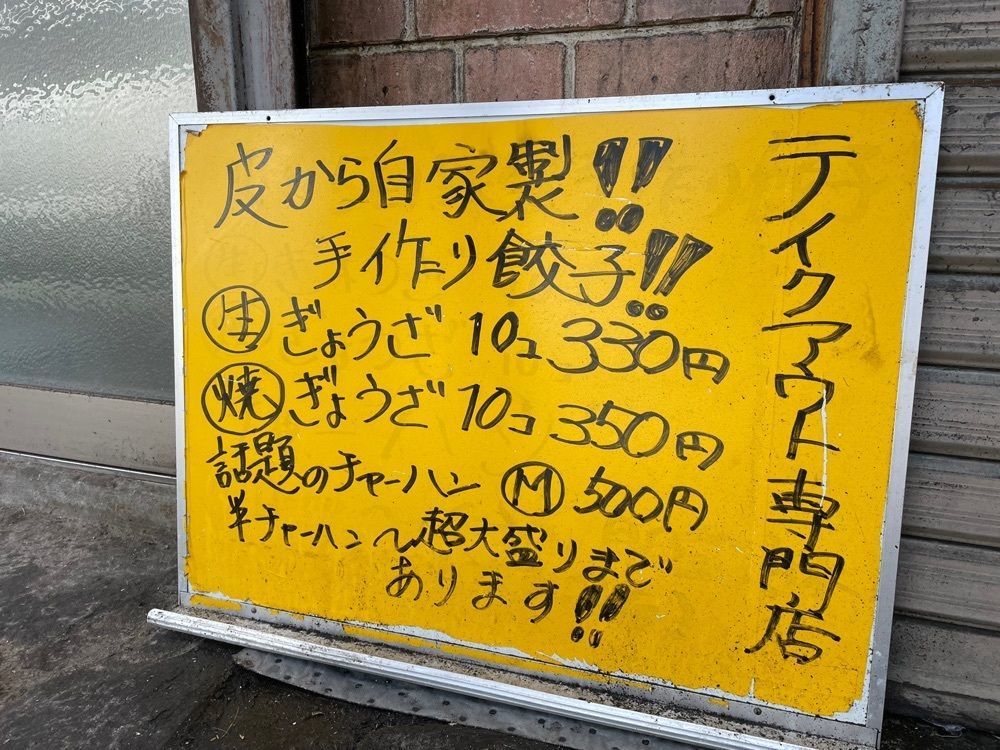 テイクアウト専門店
皮から自家製!!
手作り餃子!!
生 ぎょうざ 10コ 330円
焼 ぎょうざ 10コ 350円
話題のチャーハン M 500円
半チャーハン〜超大盛りまで
あります!!